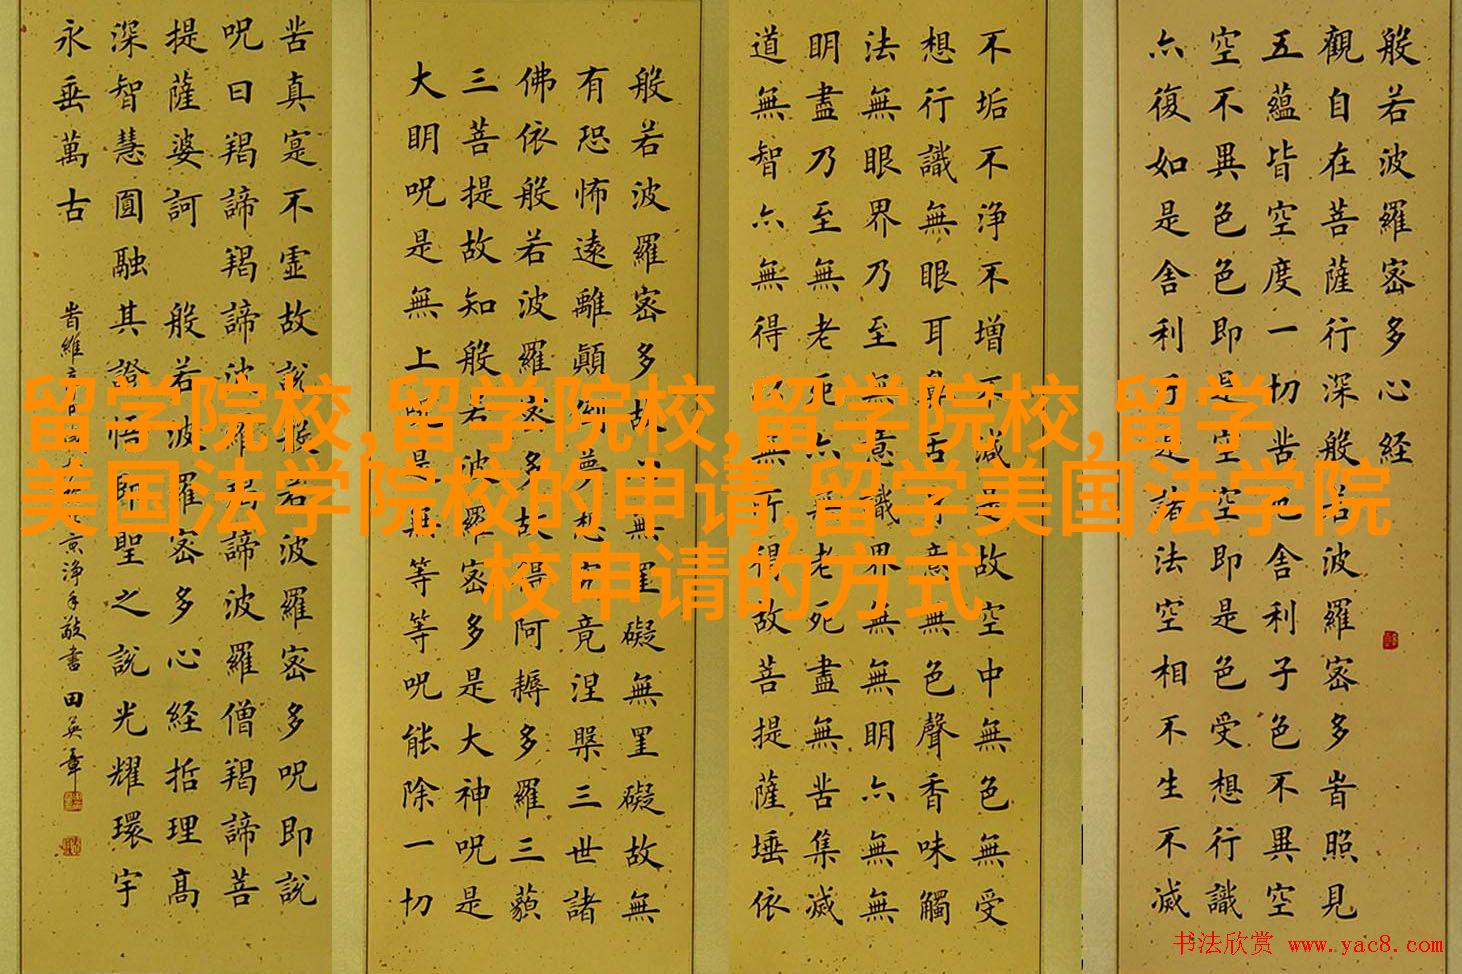 般若波羅密多心经
觀自在菩薩行深般若波羅密多旹照見
五蘊皆空度一切苦厄舍利子色不異空
空不異色色即是空空即是色受想行識
亦復如是舍利子是諸法空相不生不滅
不垢不浄不增不减是故空中無色無受
想行識無眼耳鼻舌身意無色聲香味觸
法無眼界乃至無意識界無無明亦無無
明盡乃至無老死亦無老死盡無苦集滅
道無智亦無得以無所得故菩提薩埵依
般若波羅密多故心無罣礙無罣礙故無
有恐怖遠離顛倒夢想究竟涅槃三世諸
佛依般若波羅密多故得阿耨多羅三藐
三菩提故知般若波羅密多是大神呪是
大明呪是無上呪是無等等呪能除一切
苦真寔不虛故説般若波羅密多呪即説
呪曰羯諦羯諦波羅羯諦波羅僧羯諦菩
提薩婆訶 般若波羅密多心経括理高
深智慧圓融其證悟即聖之説光耀環宇
永垂萬古
旹維 京淨手敬書 田英章
留学院校,留学院校,留学院校,留学
美国法学院校的申请,留学美国法学院
校申请的方式
书法欣赏 www.yac8.com